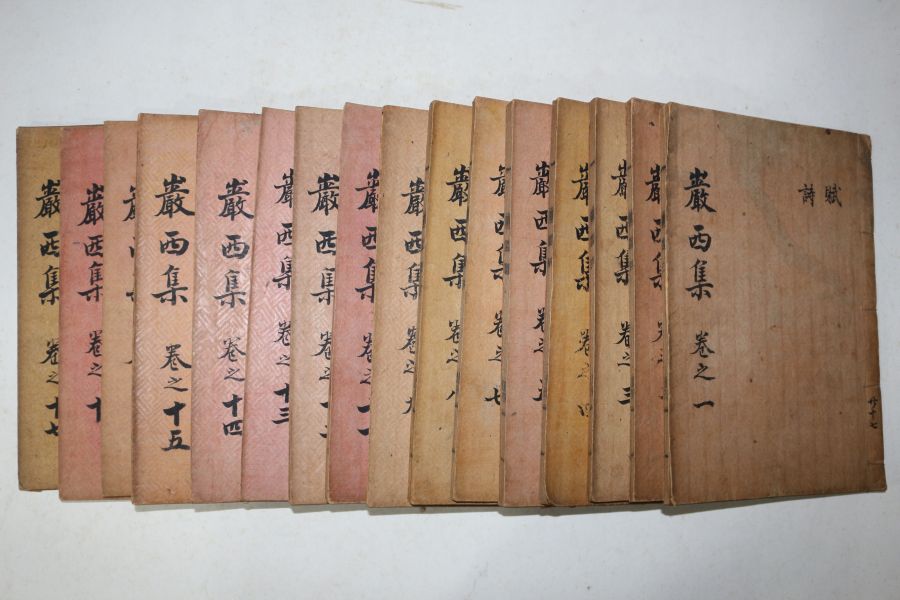 賦
詩
共十七
巖西集 卷之一
巖西集 卷之
巖西集 卷之三
巖西集 卷之四
巖西集 卷之五
巖西集 卷之七
巖西集 卷之八
巖西集 卷之九
巖西集 卷之十一
巖西集 卷之十二
巖西集 卷之十三
巖西集 卷之十四
巖西集 卷之十五
巖西集 卷之十
巖西集 卷之十七